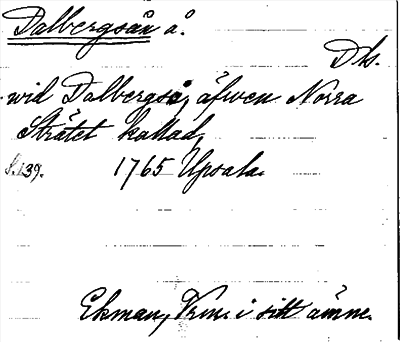 Dalbergsån å.
Dls.
wid Dalbergså, äfwen Norra
Strätet kallad,
S. 139. 1765 Upsala.
Ekman, Ven. i sitt ämne.